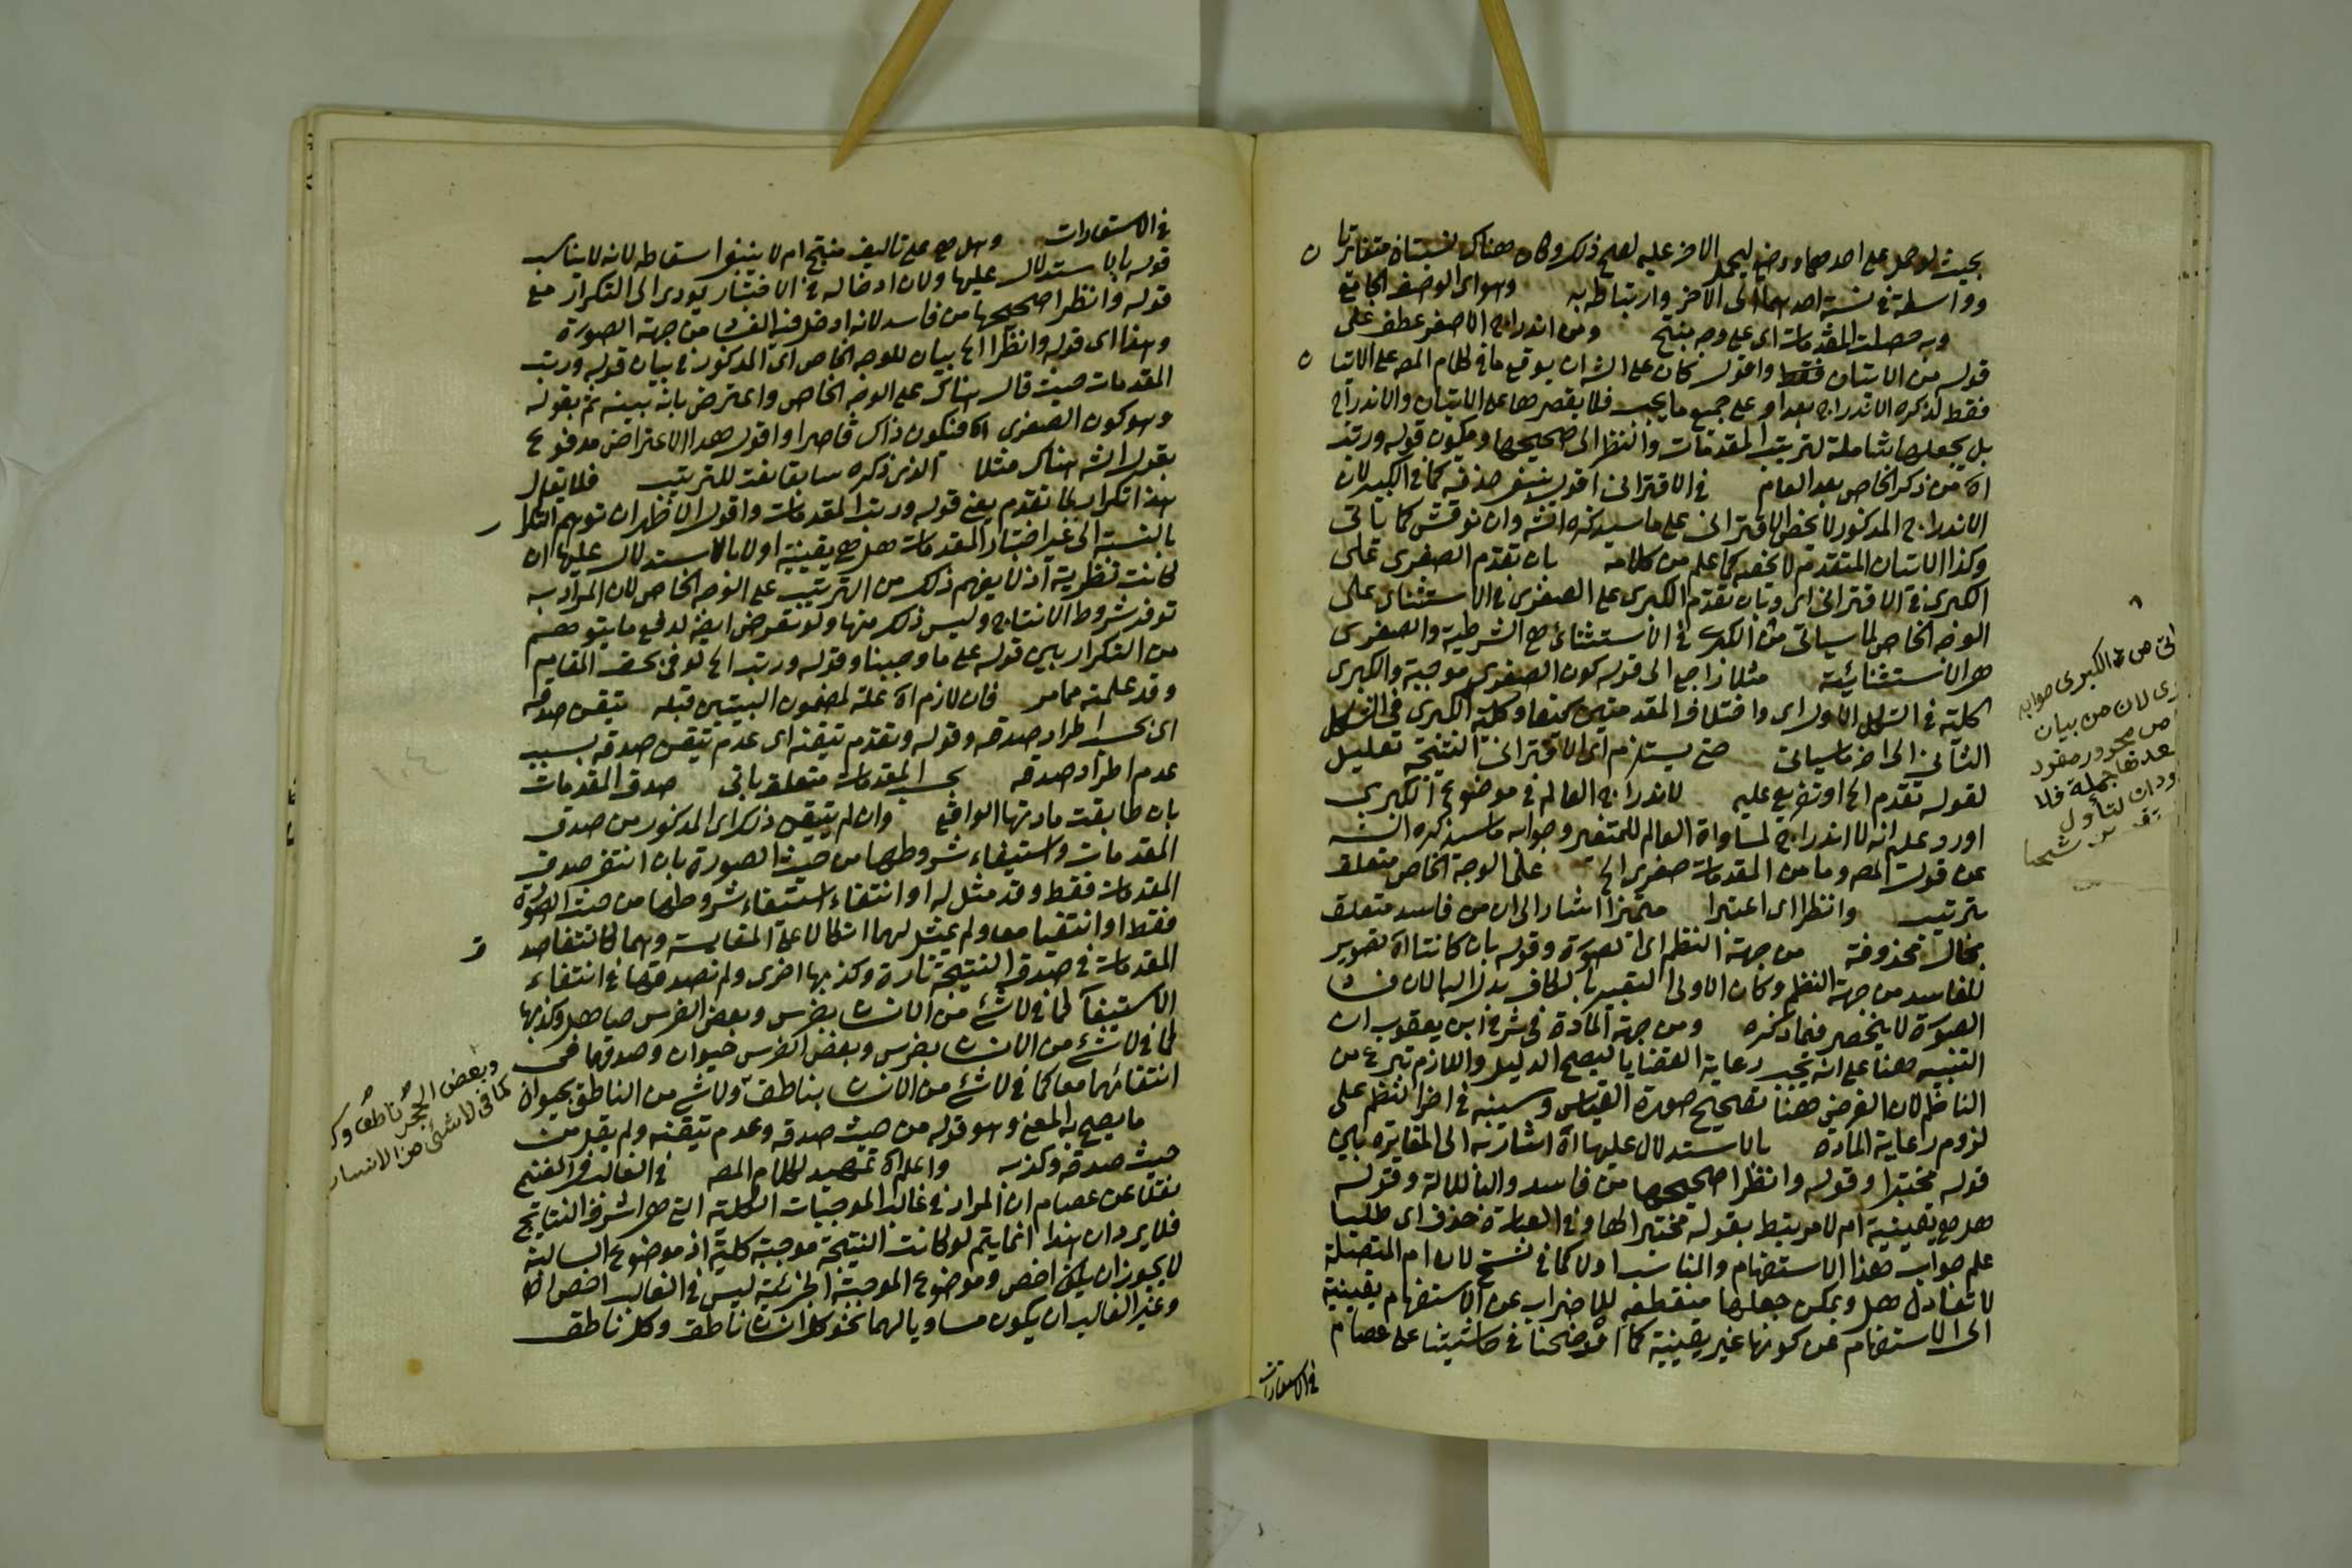 بحيث لو حمل على احدهما ووضع ليحمل الاخر عليه لصح ذلك وكان هناك نسبتان متغايرتان
وواسطة في نسبة احدهما الى الآخر وارتباطه به وهو اى الوصف الجامع
وبه حصلت المقدمات اى على وجه ينتج ومن اندراج الاصغر عطف على
قوله من الاتيان فقط واقول كان على الشه ان يوقع ما في كلام المصه على الاتيان
فقط لذكره الاندراج بعد او على جميع ما يجب فلا يقصرها على الاتيان والاندراج
بل يجعلها شاملة لترتيب المقدمات والنظر الى صحيحها ويكون قوله ورتب
اه من ذكر الخاص بعد العام في الاقترانى اقول ينبغى حذفه كما في الكبير لان
الاندراج المذكور لا يخص الاقترانى على ما سيذكره الشه وان نوقش كما ياتى
وكذا الاتيان المتقدم لا يخصه كما علم من كلامه بان تقدم الصغرى على
الكبرى في الاقترانى اى وبان تقدم الكبرى على الصغرى في الاستثنائى على
الوجه الخاص لما سياتى من ان الكبرى في الاستثنائى هى الشرطية والصغرى
هى الاستثنائية مثلا راجع الى قوله كون الصغرى موجبة والكبرى
كلية في الشكل الاول اى واختلاف المقدمتين كيفا وكلية الكبرى في الشكل
الثانى الى اخر ما سياتى حتى يستلزم اى الاقترانى النتيجة تعليل
لقوله تقدم اه او تفريع عليه لاندراج العالم في موضوع الكبرى
اورد عليه انه لا اندراج لمساواة العالم للمتغير وجوابه ما سيذكره الشه
عن قول المصه وما من المقدمات صغرى الخ على الوجه الخاص متعلق
بترتيب وانظر اى اعتبر متميزا اشار الى ان من فاسد متعلق
بحال محذوفة من جهة النظم اى الصورة وقوله بان كانتا اه تصوير
للفاسد من جهة النظم وكان الاولى التعبير بالكاف بدل الباء لان فساد
الصورة لا ينحصر فيما ذكره ومن جهة المادة في شرح ابن يعقوب ان
التنبيه هنا على انه يجب رعاية القضايا ليصح الدليل واللازم تبرع من
الناظم لان الغرض هنا تصحيح صورة القياس وسينبه في اخر النظم على
لزوم رعاية المادة بالاستدلال عليها اه اشار به الى المغايرة بين
قوله مختبرا وقوله وانظر صحيحها من فاسد والباء للالة وقوله
هل هى يقينية ام لا مرتبط بقوله مختبرا لها وفي العبارة حذف اى طلبا
علم جواب هذا الاستفهام والمناسب اولا كما في نسخ لان ام المتصلة
لا تعادل هل ويمكن جعلها منقطعة للاضراب عن الاستفهام يقينية
الى الاستفهام عن كونها غير يقينية كما اوضحنا في حاشيتنا على عصام
في الاستعارات
اى من ان الكبرى صوابه
رى لان من بيان
اص مجرور مفرد
بعدها جملة فلا
ودان لتأول
شيخنا
في الاستعارات وهل هى على تاليف منتج ام لا ينبغى اسقاطه لانه لا يناسب
قوله بالاستدلال عليها ولان ادخاله في الاختبار يودى الى التكرار مع
قوله وانظر صحيحها من فاسد لانه ادخل فيه الفساد من جهة الصورة
وهذا اى قوله وانظر الخ بيان للوجه الخاص اى المذكور في بيان قوله ورتب
المقدمات حيث قال هناك على الوجه الخاص واعترض بانه بينه ثم بقوله
وهو كون الصغرى اه فيكون ذاك قاصرا واقول هذا الاعتراض مدفوع
بقول الشه هناك مثلا الذى ذكره سابقا نعت للترتيب فلا يقال
هذا تكرار لما تقدم يعنى قوله ورتب المقدمات واقول الاظهر ان توهم التكرار
بالنسبة الى غير اختبار المقدمات هل هى يقينية اولا بالاستدلال عليها ان
كانت نظرية اذ لا يفهم ذلك من الترتيب على الوجه الخاص لان المراد به
توفر شروط الانتاج وليس ذلك منها ولو تعرض ايضا لدفع ما يتوهم
من التكرار بين قوله على ما وجبا وقوله ورتب الخ لوفى بحق المقام
وقد علمته مما مر فان لازم اه علة لمضمون البيتين قبله تيقن صدقه
اى بحسب اطراد صدقه وقوله وتقدم تيقنه اى عدم تيقن صدقه بسبب
عدم اطراد صدقه بحسب المقدمات متعلق بات صدق المقدمات
بان طابقت مادتها الواقع وان لم تتيقن ذكر اى المذكور من صدق
المقدمات واستيفاء شروطها من حيث الصورة بان انتفى صدق
المقدمات فقط وقد مثل له او انتفاء استيفاء شروطها من حيث الصورة
فقط او انتفيا معا ولم يمثل لهما اتكالا على المقايسة وهما كانتفا صدق
المقدمات في صدق النتيجة تارة وكذبها اخرى ولم نصدقها في انتفاء
الاستيفاء كما في لا شئ من الانسان بفرس وبعض الفرس صاهل وكذبها
كما في لا شئ من الانسان بفرس وبعض الفرس حيوان وصدقها في
انتفائهما معا كما في لا شئ من الانسان بناطق ولا شئ من الناطق بحيوان
ما يصح به المعنى وهو قوله من حيث صدقه وعدم تيقنه ولم يقل من
حيث صدقه وكذبه واعلم اه تمهيد لكلام المصه في الغالب في الفتح
نقلا عن عصام ان المراد في غالب الموجبات الكلية التى هى اشرف النتايج
فلا يرد ان هذا انما يتم لو كانت النتيجة موجبة كلية اذ موضوع السالبة
لا يجوز ان يكون اخص وموضوع الموجبة الجزئية ليس في الغالب اخص اه
وغير الغالب ان يكون مساويا لهما نحو كل انسان ناطق وكل ناطق
وبعض الحجر ناطق وك
كما في لا شئ من الانسان